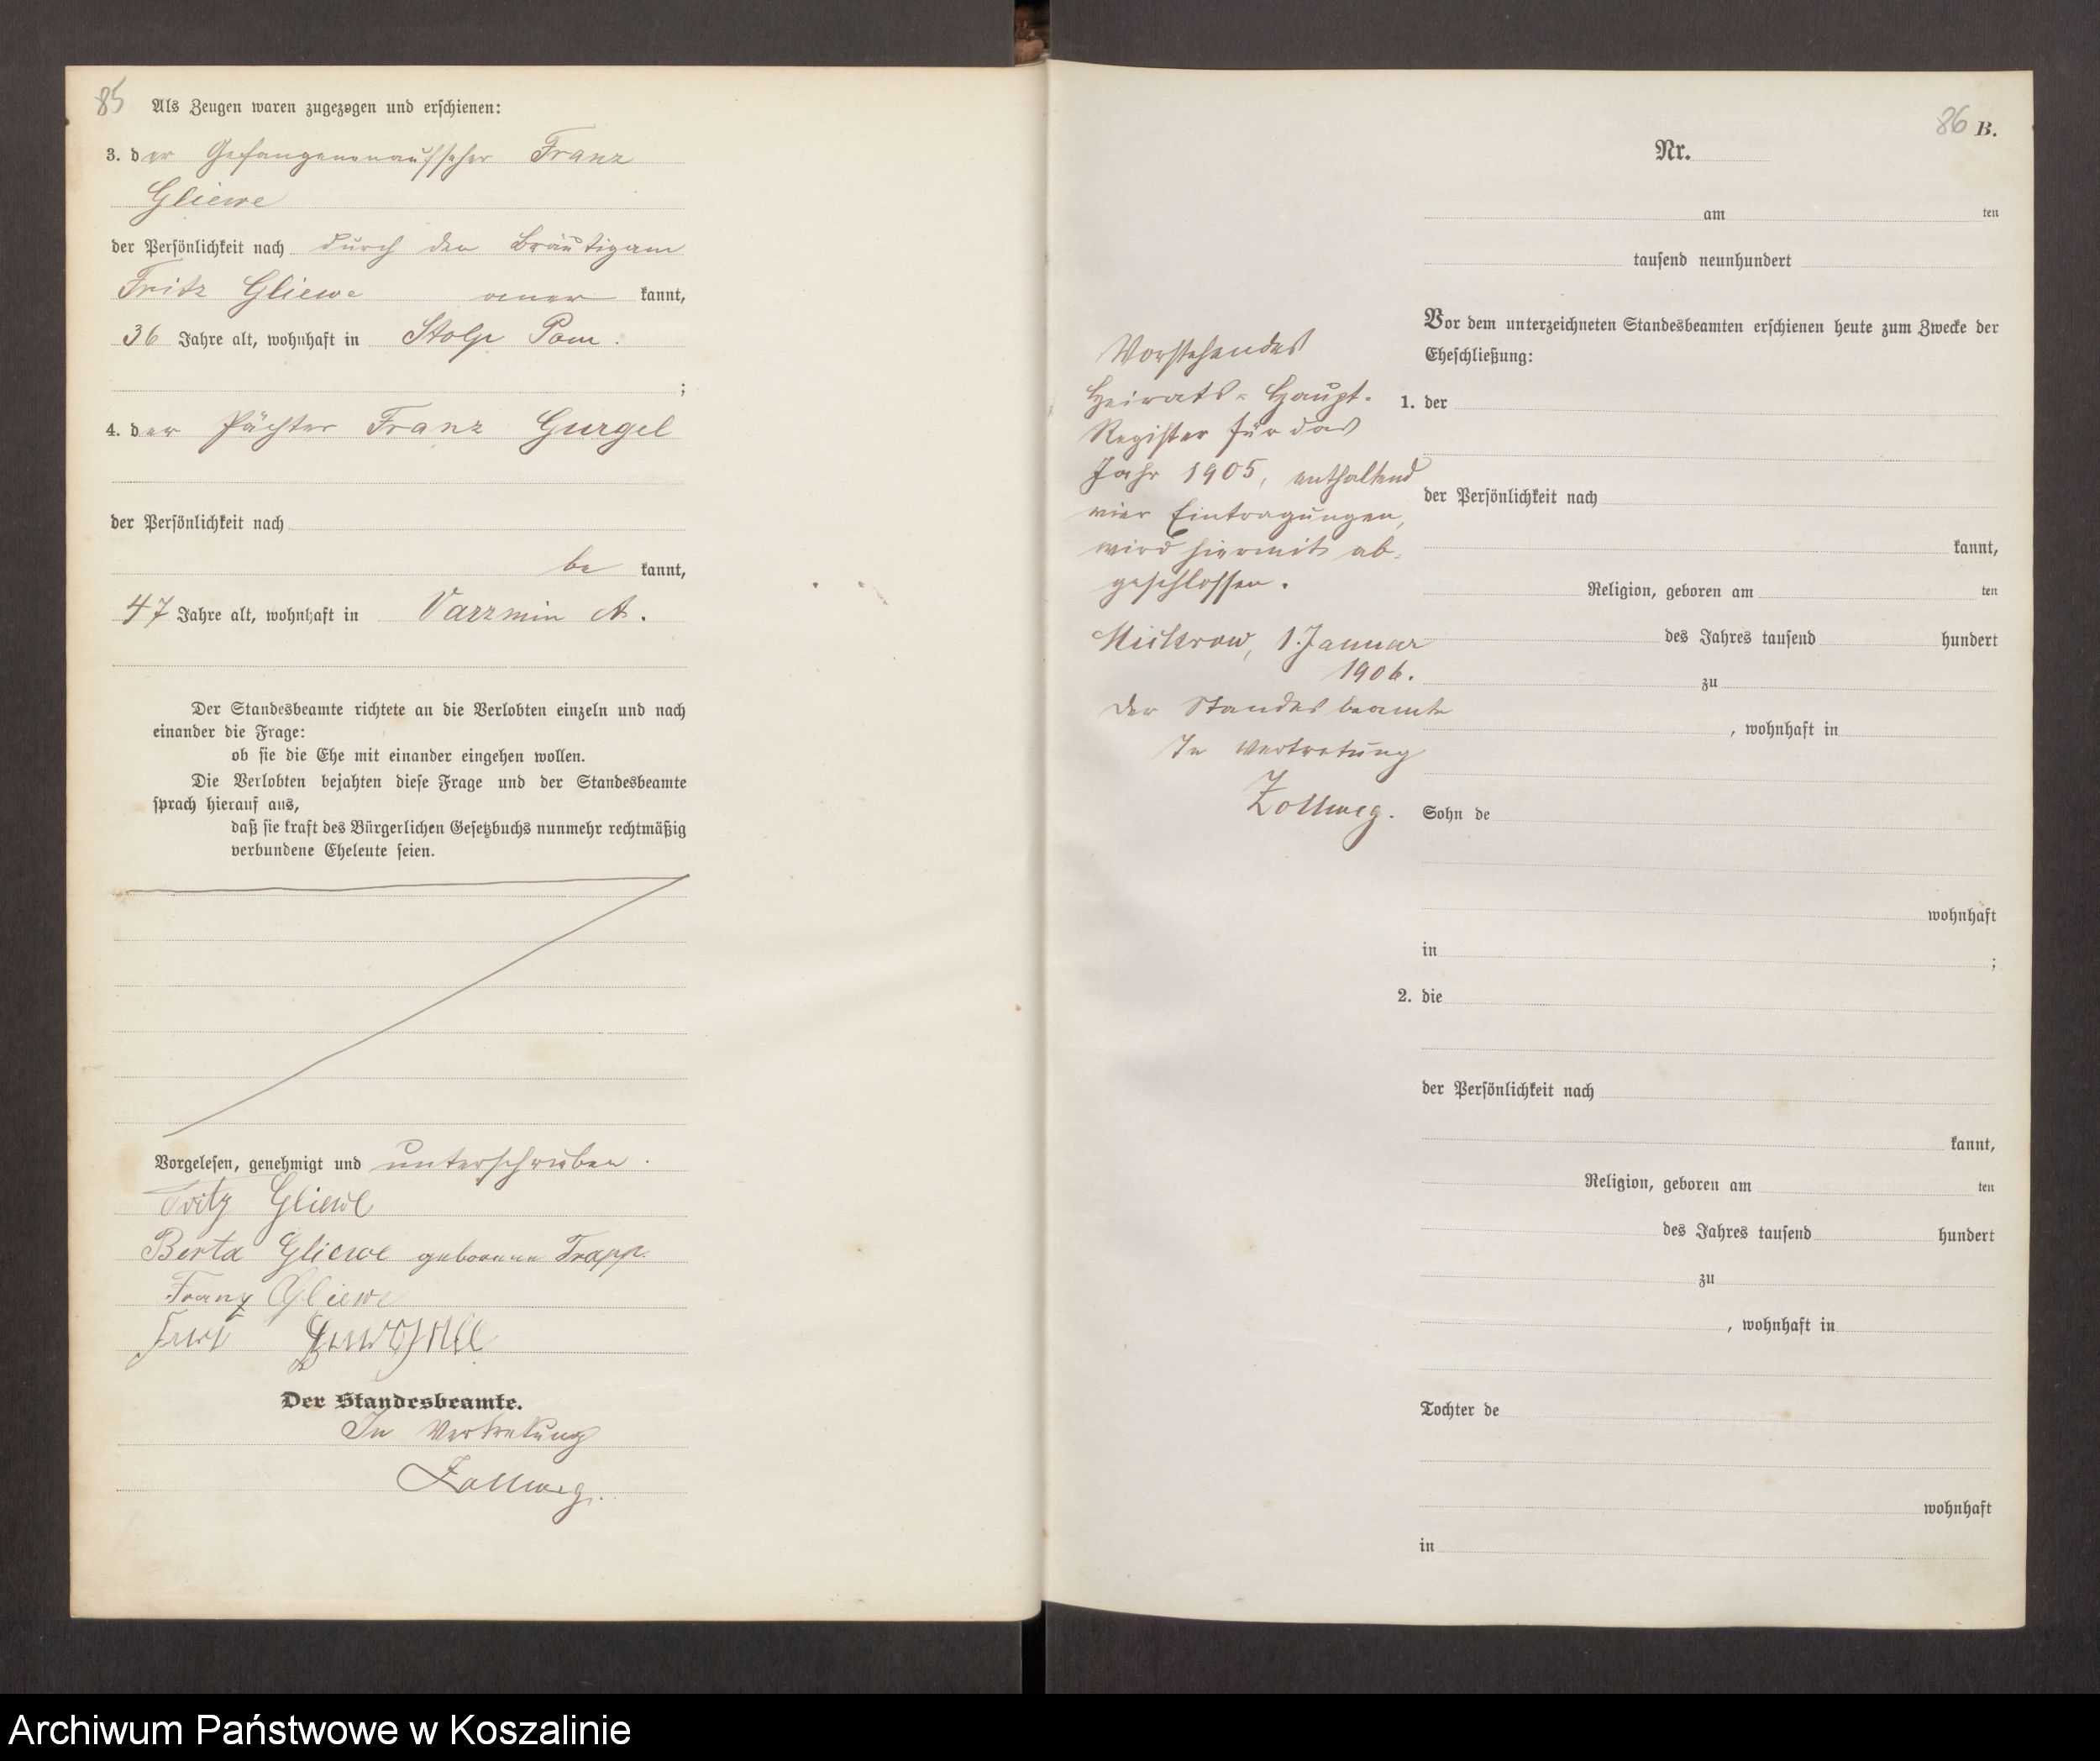 85
Als Zeugen waren zugezogen und erschienen:
3. der Gefangenenaufseher Franz
Gliewe
der Persönlichkeit nach durch den Bräutigam
Fritz Gliewe kannt,
36 Jahre alt, wohnhaft in Stolp Pom.
;
4. der Pächter Franz Gurgel
der Persönlichkeit nach
be kannt,
47 Jahre alt, wohnhaft in Varzmin A.
Der Standesbeamte richtete an die Verlobten einzeln und nach
einander die Frage:
ob sie die Ehe mit einander eingehen wollen.
Die Verlobten bejahten diese Frage und der Standesbeamte
sprach hierauf aus,
daß sie kraft des Bürgerlichen Gesetzbuchs nunmehr rechtmäßig
verbundene Eheleute seien.
Vorgelesen, genehmigt und unterschrieben.
Fritz Gliewe
Berta Gliewe geborene Trapp.
Franz Gliewe
Der Standesbeamte.
In Vertretung
Zollweg.
86 B.
Nr.
am ten
tausend neunhundert
Vor dem unterzeichneten Standesbeamten erschienen heute zum Zwecke der
Eheschließung:
1. der
der Persönlichkeit nach
kannt,
Religion, geboren am ten
des Jahres tausend hundert
zu
, wohnhaft in
Sohn de
wohnhaft
in ;
2. die
der Persönlichkeit nach
kannt,
Religion, geboren am ten
des Jahres tausend hundert
zu
, wohnhaft in
Tochter de
wohnhaft
in
Vorstehendes
Heirats-Haupt-
Register für das
Jahr 1905, enthaltend
vier Eintragungen,
wird hiermit ab-
geschlossen.
Mickrow, 1. Januar
1906.
Der Standesbeamte
In Vertretung
Zollweg.
Archiwum Państwowe w Koszalinie